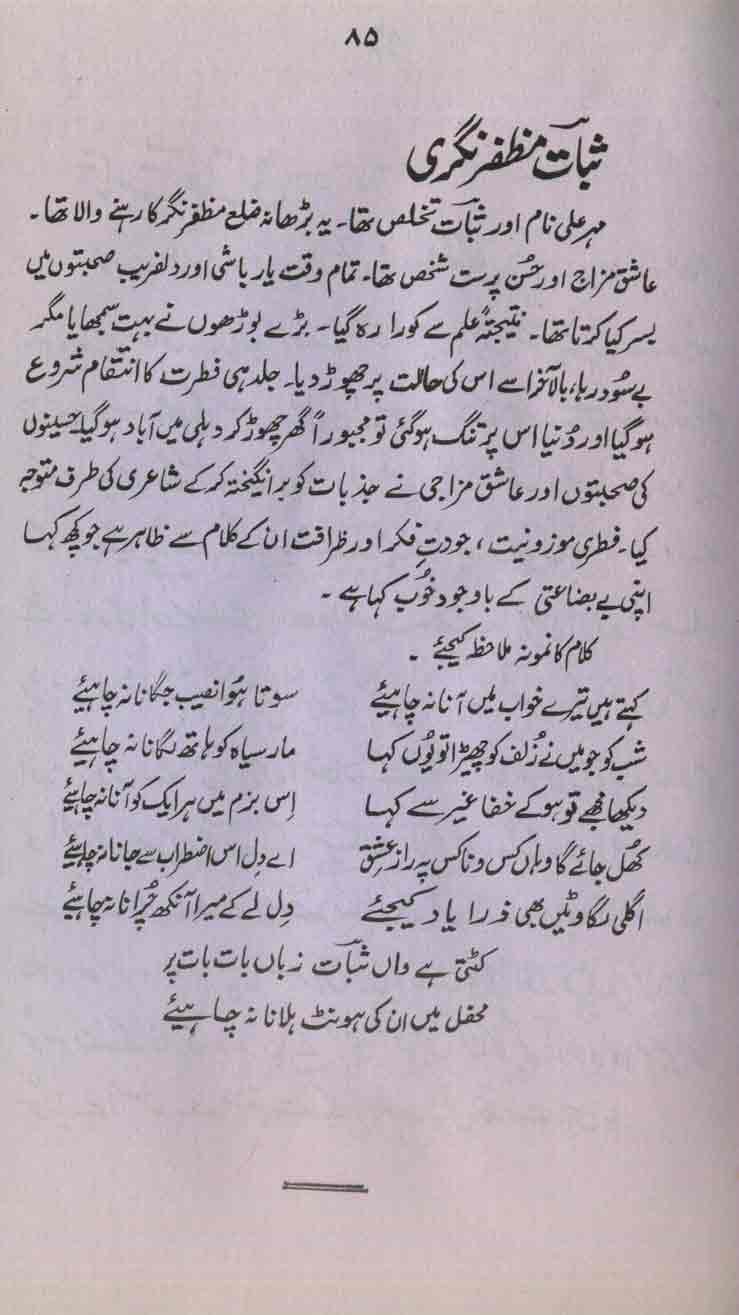 ۸۵
ثباتؔ مظفرنگری
مہر علی نام اور ثباتؔ تخلص تھا۔ یہ بڑھانہ ضلع مظفرنگر کا رہنے والا تھا۔
عاشق مزاج اور حُسن پرست شخص تھا۔ تمام وقت یار باشی اور دلفریب صحبتوں میں
بسر کیا کرتا تھا۔ نتیجتہً علم سے کورا رہ گیا۔ بڑے بوڑھوں نے بہت سمجھایا مگر
بے سُود رہا، بالآخر اسے اس کی حالت پر چھوڑ دیا۔ جلد ہی فطرت کا انتقام شروع
ہو گیا اور دُنیا اس پر تنگ ہو گئی تو مجبوراً گھر چھوڑ کر دہلی میں آباد ہو گیا۔ حسینوں
کی صحبتوں اور عاشق مزاجی نے جذبات کو برانگیختہ کر کے شاعری کی طرف متوجہ
کیا۔ فطری موزونیت، جودتِ فکر اور ظرافت ان کے کلام سے ظاہر ہے جو کچھ کہا
اپنی بے بضاعتی کے باوجود خُوب کہا ہے۔
کلام کا نمونہ ملاحظہ کیجئے۔
کہتے ہیں تیرے خواب میں آنا نہ چاہیئے سوتا ہُوا نصیب جگانا نہ چاہیئے
شب کو جو میں نے زُلف کو چھیڑا تو یُوں کہا مار سیاہ کو ہاتھ لگانا نہ چاہیئے
دیکھا مجھے تو ہو کے خفا غیر سے کہا اِس بزم میں ہر ایک کو آنا نہ چاہیئے
کھُل جائے گا وہاں کس و ناکس پہ رازِ عشق اے دِل اس اضطراب سے جانا نہ چاہیئے
اگلی لگاوٹیں بھی ذرا یاد کیجئے دِل لے کے میرا آنکھ چُرانا نہ چاہیئے
کٹتی ہے واں ثباتؔ زباں بات بات پر
محفل میں ان کی ہونٹ ہلانا نہ چاہیئے